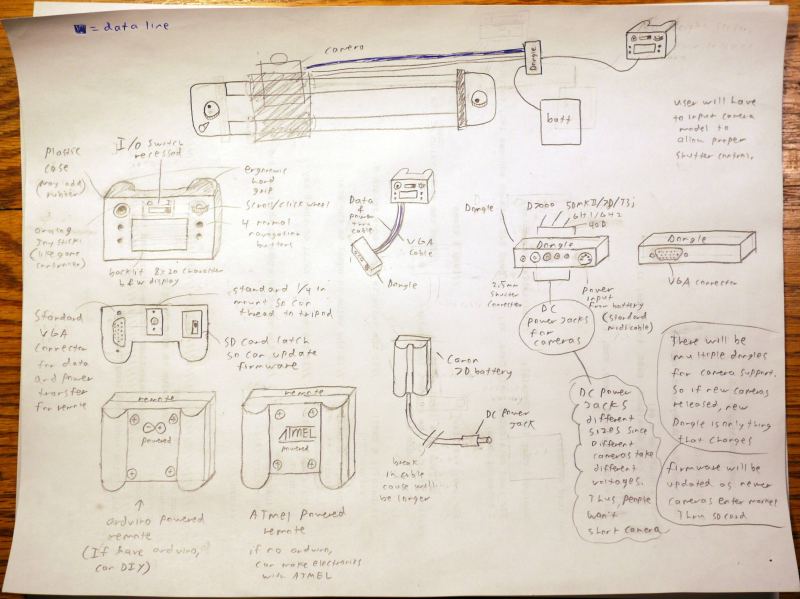 = data line
camera
Dongle
batt
user will have
to input camera
model to
allow proper
shutter control.
Plastic
case
(may add
rubber)
I/O switch
recessed
ergonomic
hand
grip
Scroll/click wheel
4 normal
navigation
buttons
analog
Joy sticks
(like game
controller)
backlit 8x20 character
b&w display
Data
&
power
thru
cable
VGA
cable
Dongle
Dongle
D7000
50mkII/7D/T3i
GH1/GH2
40D
Dongle
2.5mm
shutter
connector
Power
input
from battery
(standard
midi cable)
DC
power jacks
for
cameras
Dongle
VGA connector
standard 1/4 in
mount so can
thread to tripod
Standard
VGA
Connector
for data
and power
transfer
for remote
SD card latch
so can update
firmware
Canon
7D battery
DC power
jack
break
in cable
cause will
be longer
DC power
Jacks
different
sizes since
Different
cameras take
different
voltages.
Thus, people
won't
short camera
There will be
multiple dongles
for camera support.
So if new cameras
released, new
Dongle is only thing
that changes
firmware will be
updated as newer
cameras enter market
Thru SD card
remote
powered
remote
ATMEL
powered
arduino powered
remote
(If have arduino,
can DIY)
ATmel Powered
remote
if no arduino,
can make electronics
with ATMEL